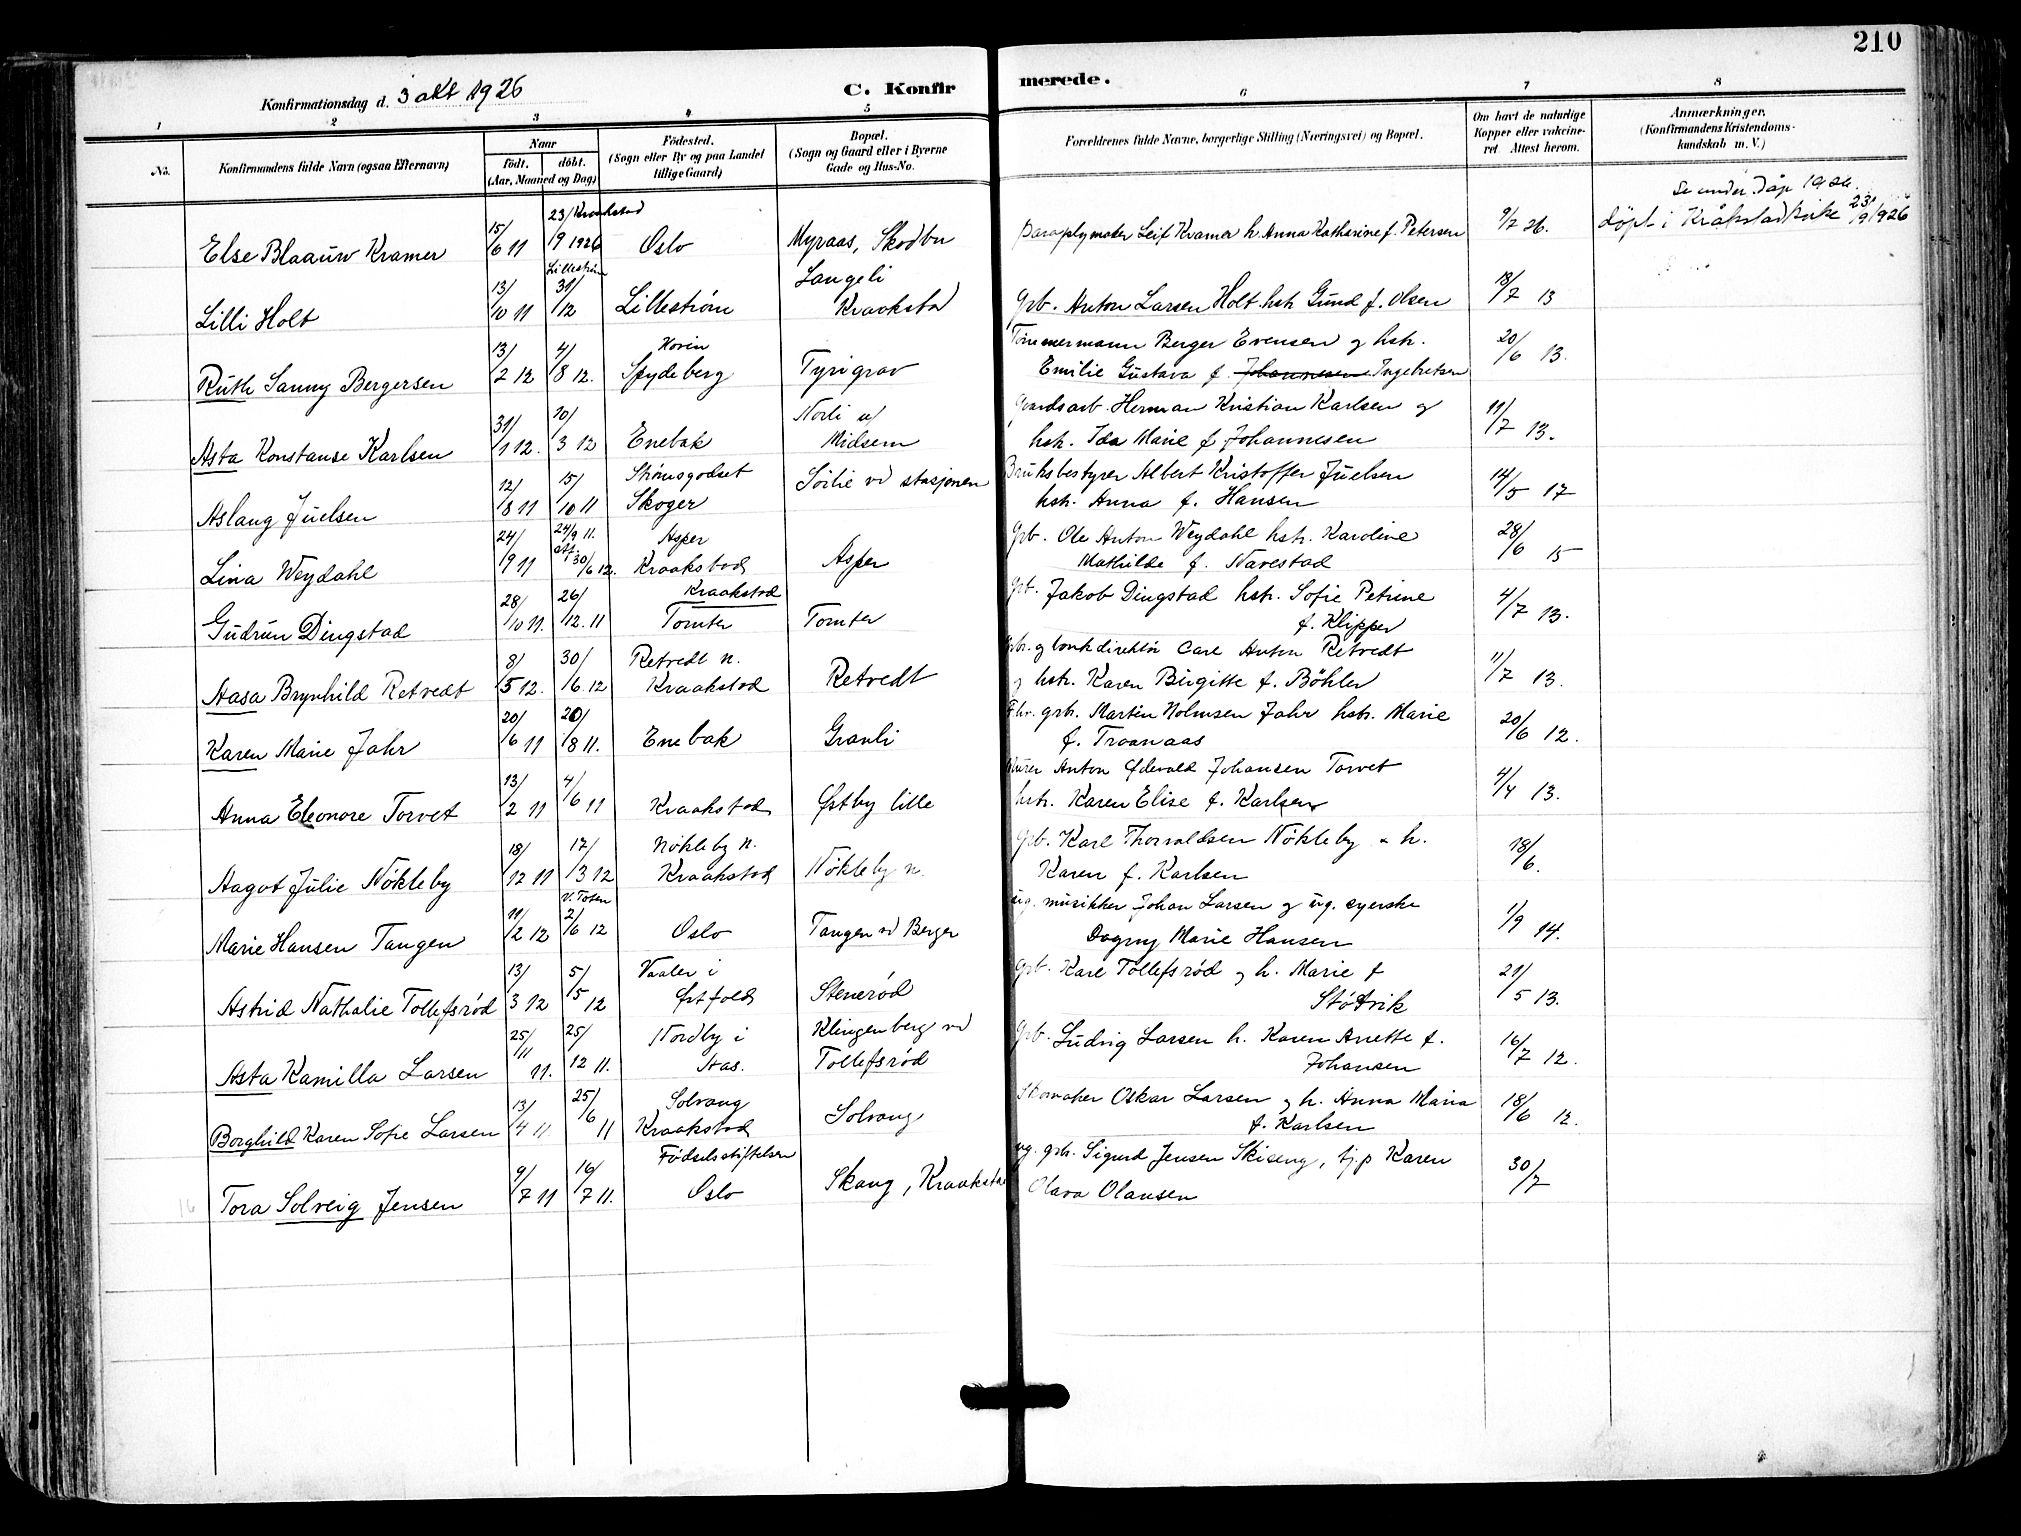 210
Konfirmationsdag d. 3 okt 1926 C. Konfirmerede.
1 2 3 4 5 6 7 8
No. Konfirmandens fulde Navn (ogsaa Efternavn) Naar født. døbt. (Aar, Maaned og Dag) Fødested. (Sogn eller By og paa Landet tillige Gaard) Bopæl. (Sogn og Gaard eller i Byerne Gade og Hus-No. Forældrenes fulde Navne, borgerlige Stilling (Næringsvei) og Bopæl. Om havt de naturlige Kopper eller vakcineret. Attest herom. Anmærkninger. (Konfirmandens Kristendomskundskab m. V.)
Se under Dåp 1926.
Else Blaauw Kramer 15/6 11 23/9 1926 Kraakstad Oslo Myraas, Skodbu Paraplymaker Leif Kramer h. Anna Katharine f. Petersen 9/7 26. døpt i Kråkstad kirke 23/9 1926
Lilli Holt 13/10 11 Lillestrøm 31/12 Lillestrøm Langeli Kraakstad Grb. Anton Larsen Holt hstr. Gund f. Olsen 18/7 13
Ruth Sanny Bergersen 13/2 12 4/8 12. Hovin Spydeberg Tyrigrav Tømmermann Berger Evensen og hstr. Emilie Gustava f. Johannesen Ingebretsen 20/6 13.
Asta Konstanse Karlsen 31/1 12. 10/3 12 Enebak Norli u/ Midsem Gaardsarb. Herman Kristian Karlsen og hstr. Ida Marie f. Johannesen 11/7 13.
Aslaug Juelsen 12/8 11 15/10 11 Strømsgodset Skoger Sørlie vd stasjonen Bruksbestyrer Albert Kristoffer Juelsen hstr. Anna f. Hansen 14/5 17
Lina Weydahl 24/9 11 24/9 11. 30/6 12. Asper Kraakstad Asper Grb. Ole Anton Weydahl hstr. Karoline Mathilde f. Navestad 28/6 15
Gudrun Dingstad 28/10 11. 26/12. 11 Kraakstad Tomter Tomter Grb. Jakob Dingstad hstr. Sofie Petrine f. Klipper 4/7 13.
Aasa Brynhild Retvedt 8/5 12. 30/6 12 Retvedt n. Kraakstad Retvedt Grb. og bankdirektør Carl Anton Retvedt og hstr. Karen Birgitte f. Bøhler 11/7 13.
Karen Marie Jahr 20/6 11 20/8 11. Enebak Granli Fhv. grb. Martin Holmsen Jahr hstr. Marie f. Traanaas 20/6 12.
Anna Eleonore Torvet 13/2 11 4/6 11 Kraakstad Østby lille Murer Anton Edevald Johansen Torvet hstr. Karen Elise f. Karlsen 4/4 13.
Aagot Julie Nøkleby 18/12 11 17/3 12 Nøkleby n. Kraakstad Nøkleby n. Grb. Karl Thorvaldsen Nøkleby & h. Karen f. Karlsen 18/6.
Marie Hansen Tangen 11/2 12 V. Toten 2/6 12 Oslo Tangen vd Berger ug. musikker Johan Larsen og ug. syerske Dagny Marie Hansen 1/9 14.
Astrid Nathalie Tollefsrød 13/3 12 5/5 12 Vaaler i Østfold Stenerød Grb. Karl Tollefsrød og h. Marie f Støtvik 21/5 13.
Asta Kamilla Larsen 25/11 11. 25/12 11. Nordby i Aas. Klingenberg vd Tollefsrød Grb. Ludvig Larsen h. Karen Anette f. Johansen 16/7 12.
Borghild Karen Sofie Larsen 13/4 11 25/6 11 Solvang Kraakstad Solvang Skomaker Oskar Larsen og h. Anna Maria f. Karlsen 18/6 12.
16 Tora Solveig Jensen 9/7 11 16/7 11. Fødselsstiftelsen Oslo Skaug, Kraakstad ug. grb. Sigurd Jensen Skiseng, tj.p Karen Olava Olausen 30/7